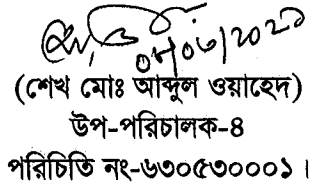 ০৮/০৬/২০২১
(শেখ মোঃ আব্দুল ওয়াহেদ)
উপ-পরিচালক-৪
পরিচিতি নং-৬৩০৫৩০০০১।